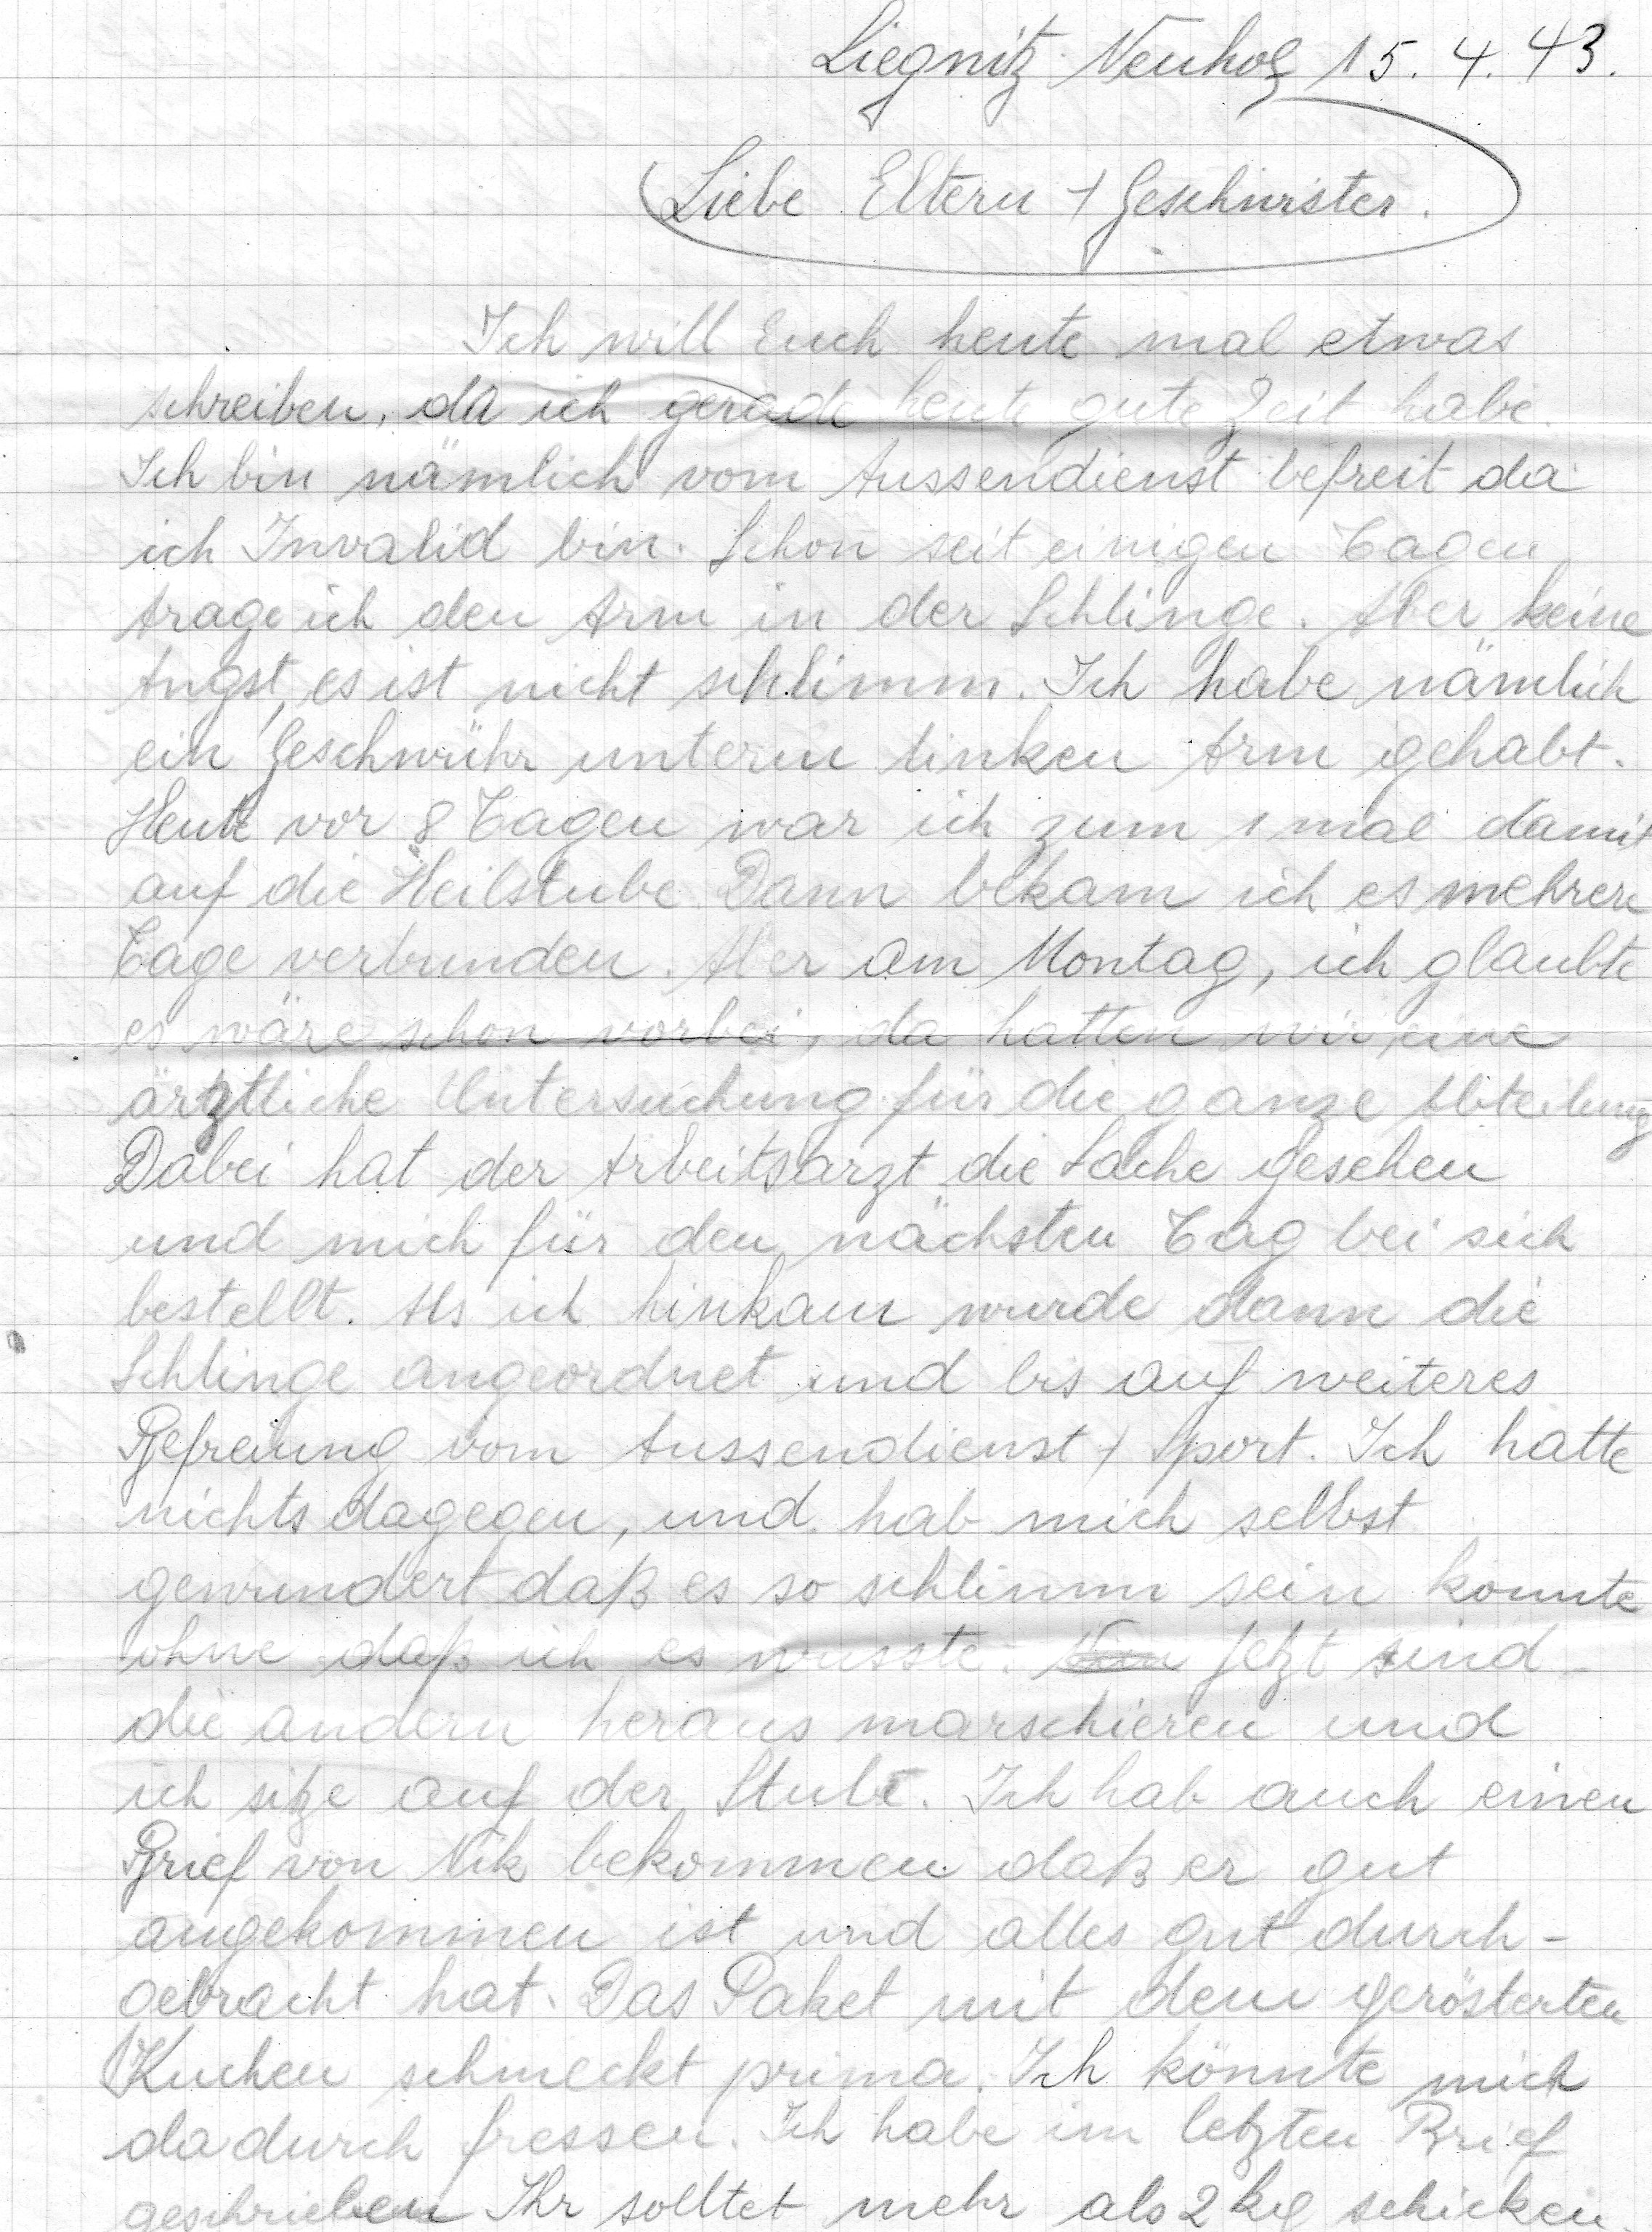 Liegnitz Neuhof 15. 4. 43.
Liebe Eltern + Geschwister.
Ich will Euch heute mal etwas
schreiben, da ich gerade heute gute Zeit habe.
Ich bin nämlich vom Aussendienst befreit da
ich Invalid bin. Schon seit einigen Tagen
trage ich den Arm in der Schlinge. Aber keine
Angst, es ist nicht schlimm. Ich habe nämlich
ein Geschwühr unterm linken Arm gehabt.
Heute vor 8 Tagen war ich zum 1 mal damit
auf die Heilstube. Dann bekam ich es mehrere
Tage verbunden. Aber am Montag, ich glaubte
es wäre schon vorbei, da hatten wir eine
ärztliche Untersuchung für die ganze Abteilung
Dabei hat der Arbeitsarzt die Sache gesehen
und mich für den nächsten Tag bei sich
bestellt. Als ich hinkam wurde dann die
Schlinge angeordnet und bis auf weiteres
Befreiung vom Aussendienst + Sport. Ich hatte
nichts dagegen, und hab mich selbst
gewundert daß es so schlimm sein konnte
ohne daß ich es wusste. Jetzt sind
die andern heraus marschieren und
ich sitze auf der Stube. Ich hab auch einen
Brief von Nik bekommen daß er gut
angekommen ist und alles gut durch-
gebracht hat. Das Paket mit dem gerösterten
Kuchen schmeckt prima. Ich könnte mich
dadurch fressen. Ich habe im letzten Brief
geschrieben Ihr solltet mehr als 2 kg schicken.